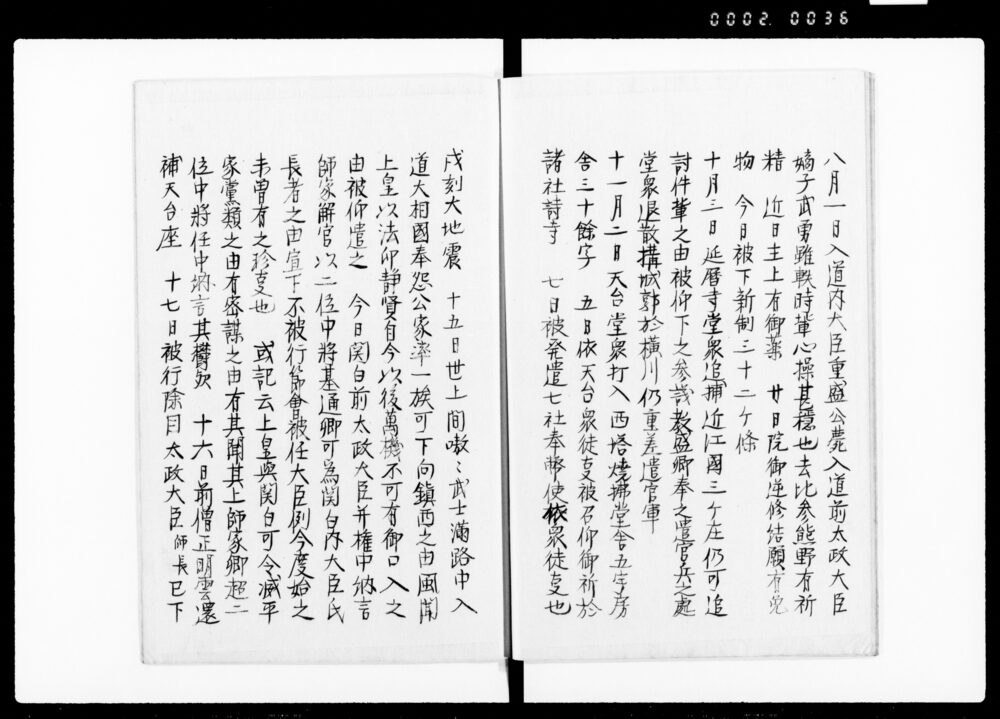 0002.0036
八月一日入道内大臣重盛公薨入道前太政大臣
嫡子武勇雖軼時輩心操甚穏也去比参熊野有祈
精　近日主上有御薬　廿日院御逆修結願有免
物　今日被下新制三十二ケ條
十月三日延暦寺堂衆追捕近江國三ケ庄仍可追
討件輩之由被仰下之参議教盛卿奉之遣官兵之處
堂衆退散搆城郭於横川仍重差遣官軍
十一月二日天台堂衆打入西塔燒拂堂舎五宇房
舎三十餘宇　五日依天台衆徒㕝被召仰御祈於
諸社諸寺　七日被発遣七社奉幣使依衆徒㕝也
戌刻大地震　十五日世上間嗷〻武士滿路中入
道大相國奉怨公家率一族可下向鎮西之由風聞
上皇以法印静賢自今以後萬機不可有御口入之
由被仰遣之　今日関白前太政大臣并權中納言
師家解官以二位中將基通卿可為関白内大臣氏
長者之由宣下不被行節會被任大臣例今度始之
未曾有之珍㕝也　或記云上皇與関白可令滅平
家黨類之由有密謀之由有其聞其上師家卿超二
位中將任中納言其欝欤　十六日前僧正明雲還
補天台座　十七日被行除目太政大臣師長已下